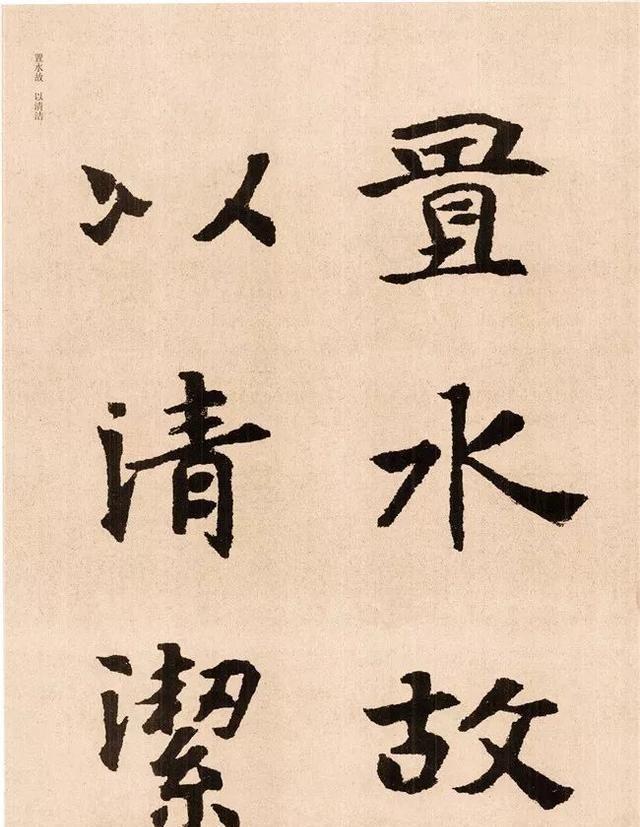 置水故
以清潔
置水故 以清洁